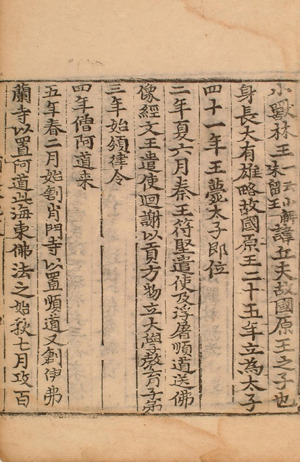 小獸林王一云小解朱留王諱丘夫故國原王之子也
身長大有雄略故國原王二十五年立爲太子
四十一年王薨太子即位
二年夏六月秦王苻堅遣使及浮屠順道送佛
像經文王遣使迴謝以貢方物立大學敎育子弟
三年始頒律令
四年僧阿道来
五年春二月始創肖門寺以置順道又創伊弗
蘭寺以置阿道此海東佛法之始秋七月攻百